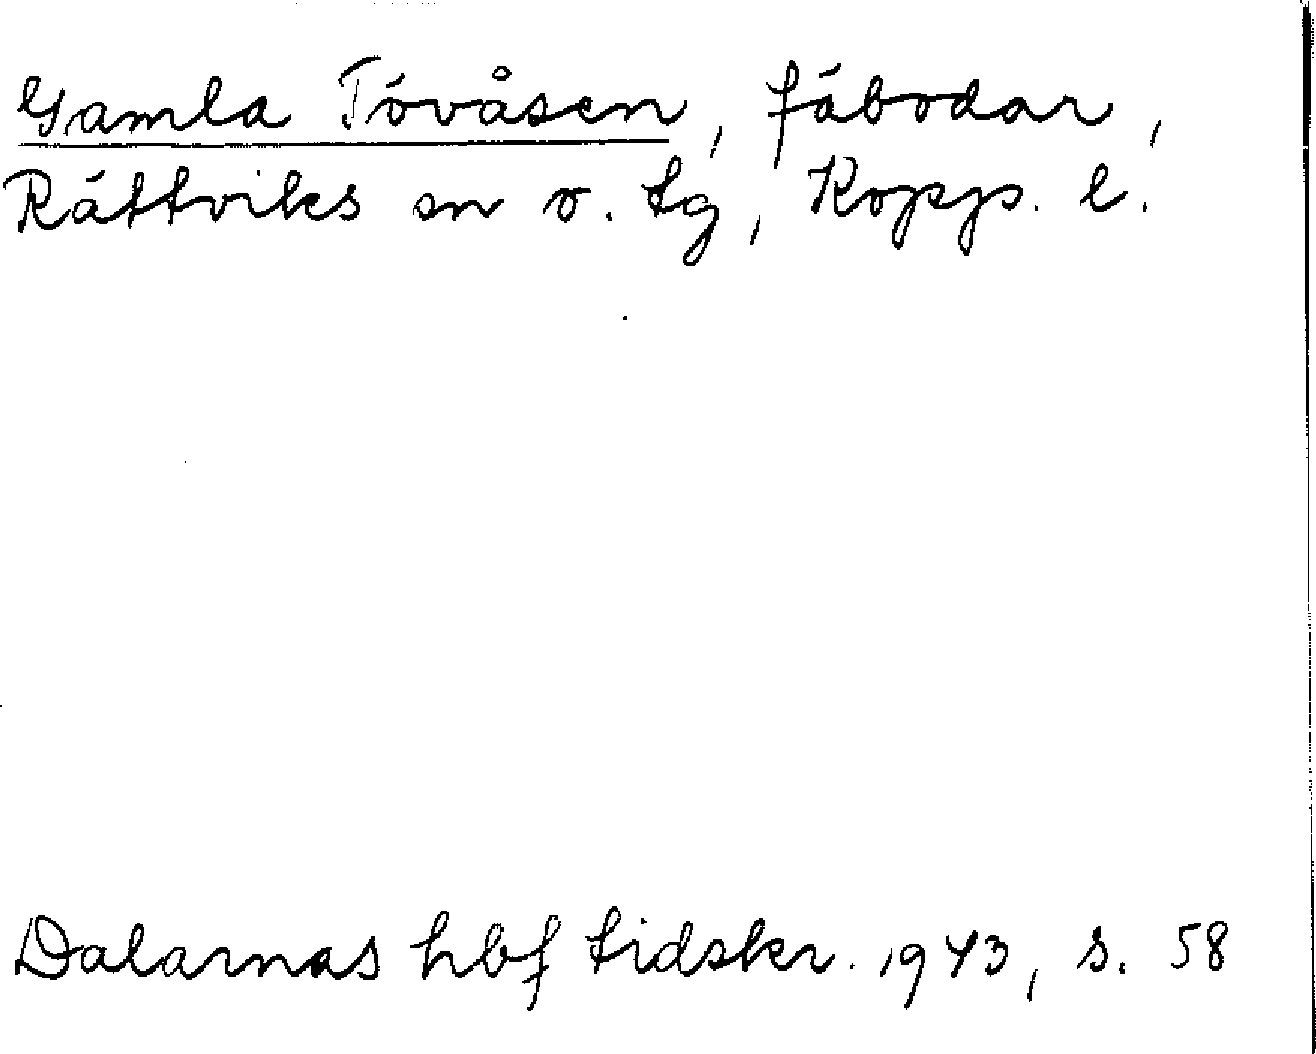 Gamla Tövåsen, fäbodar,
Rättviks sn o. tg, Kopp. l.
Dalarnas hbf tidskr. 1943, s. 58